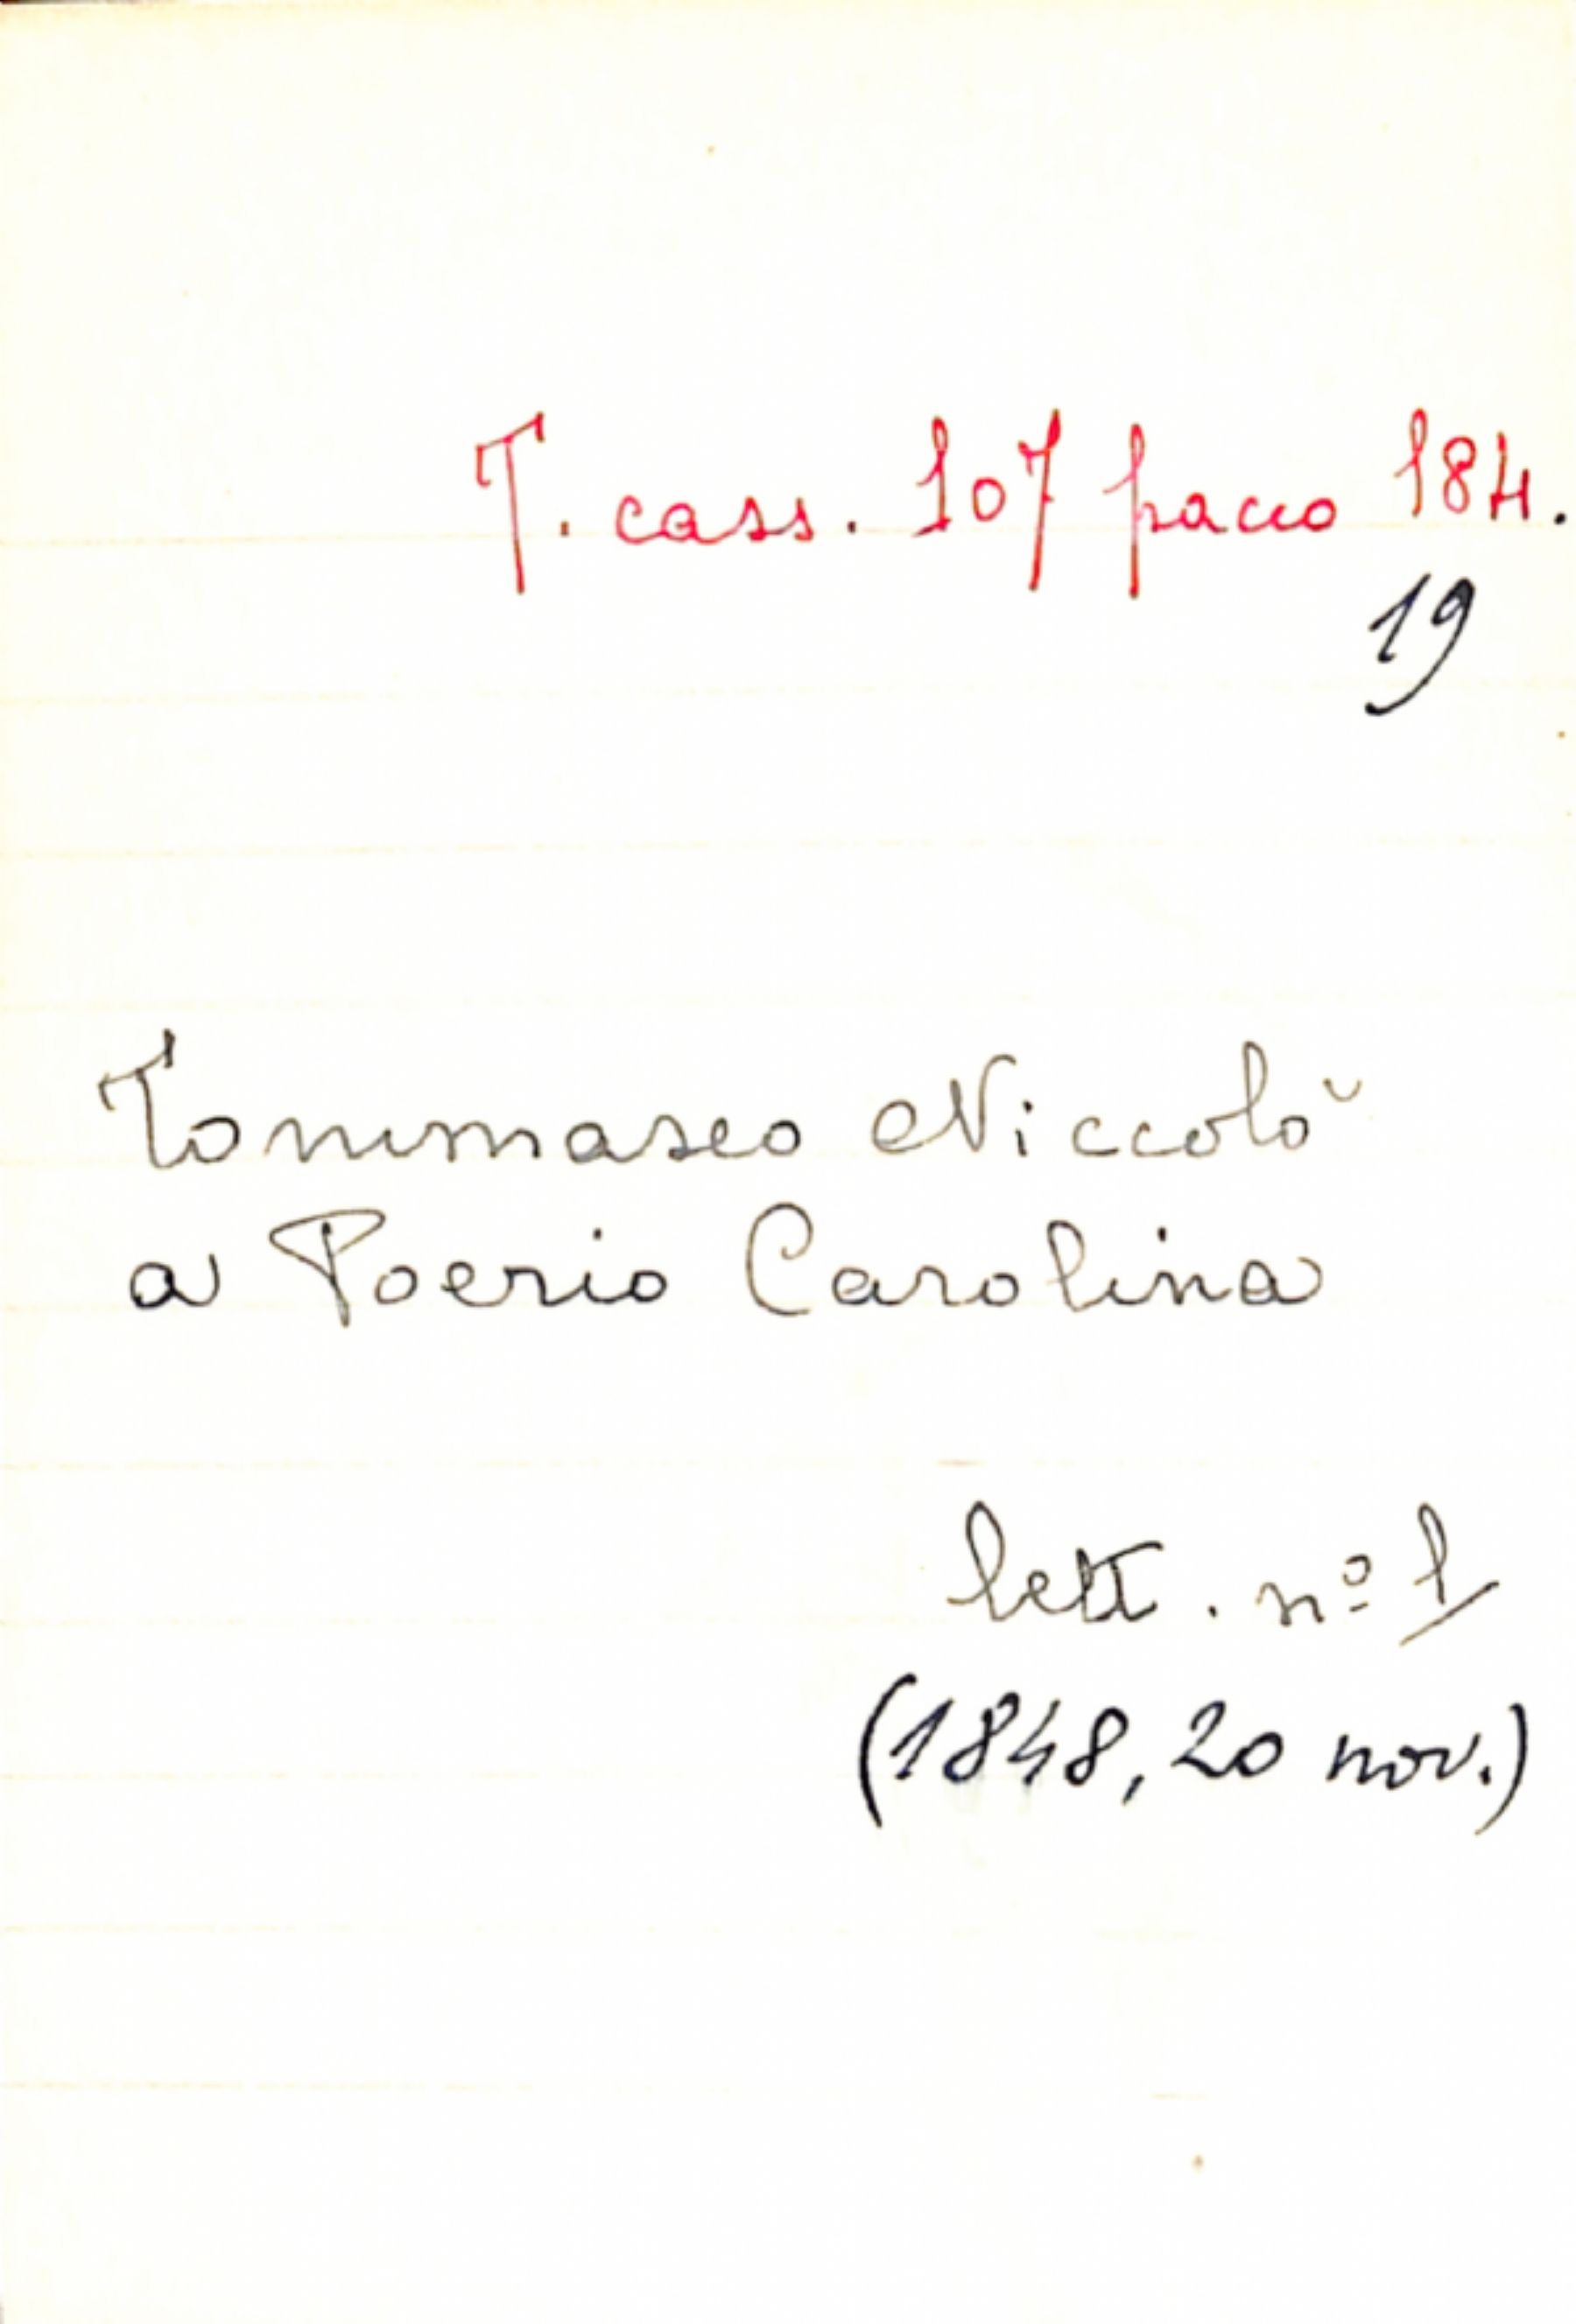 T. cass. 107 pacco 184.
19
Tommaseo Niccolò
a Poerio Carolina
lett. nº 1
(1848, 20 nov.)